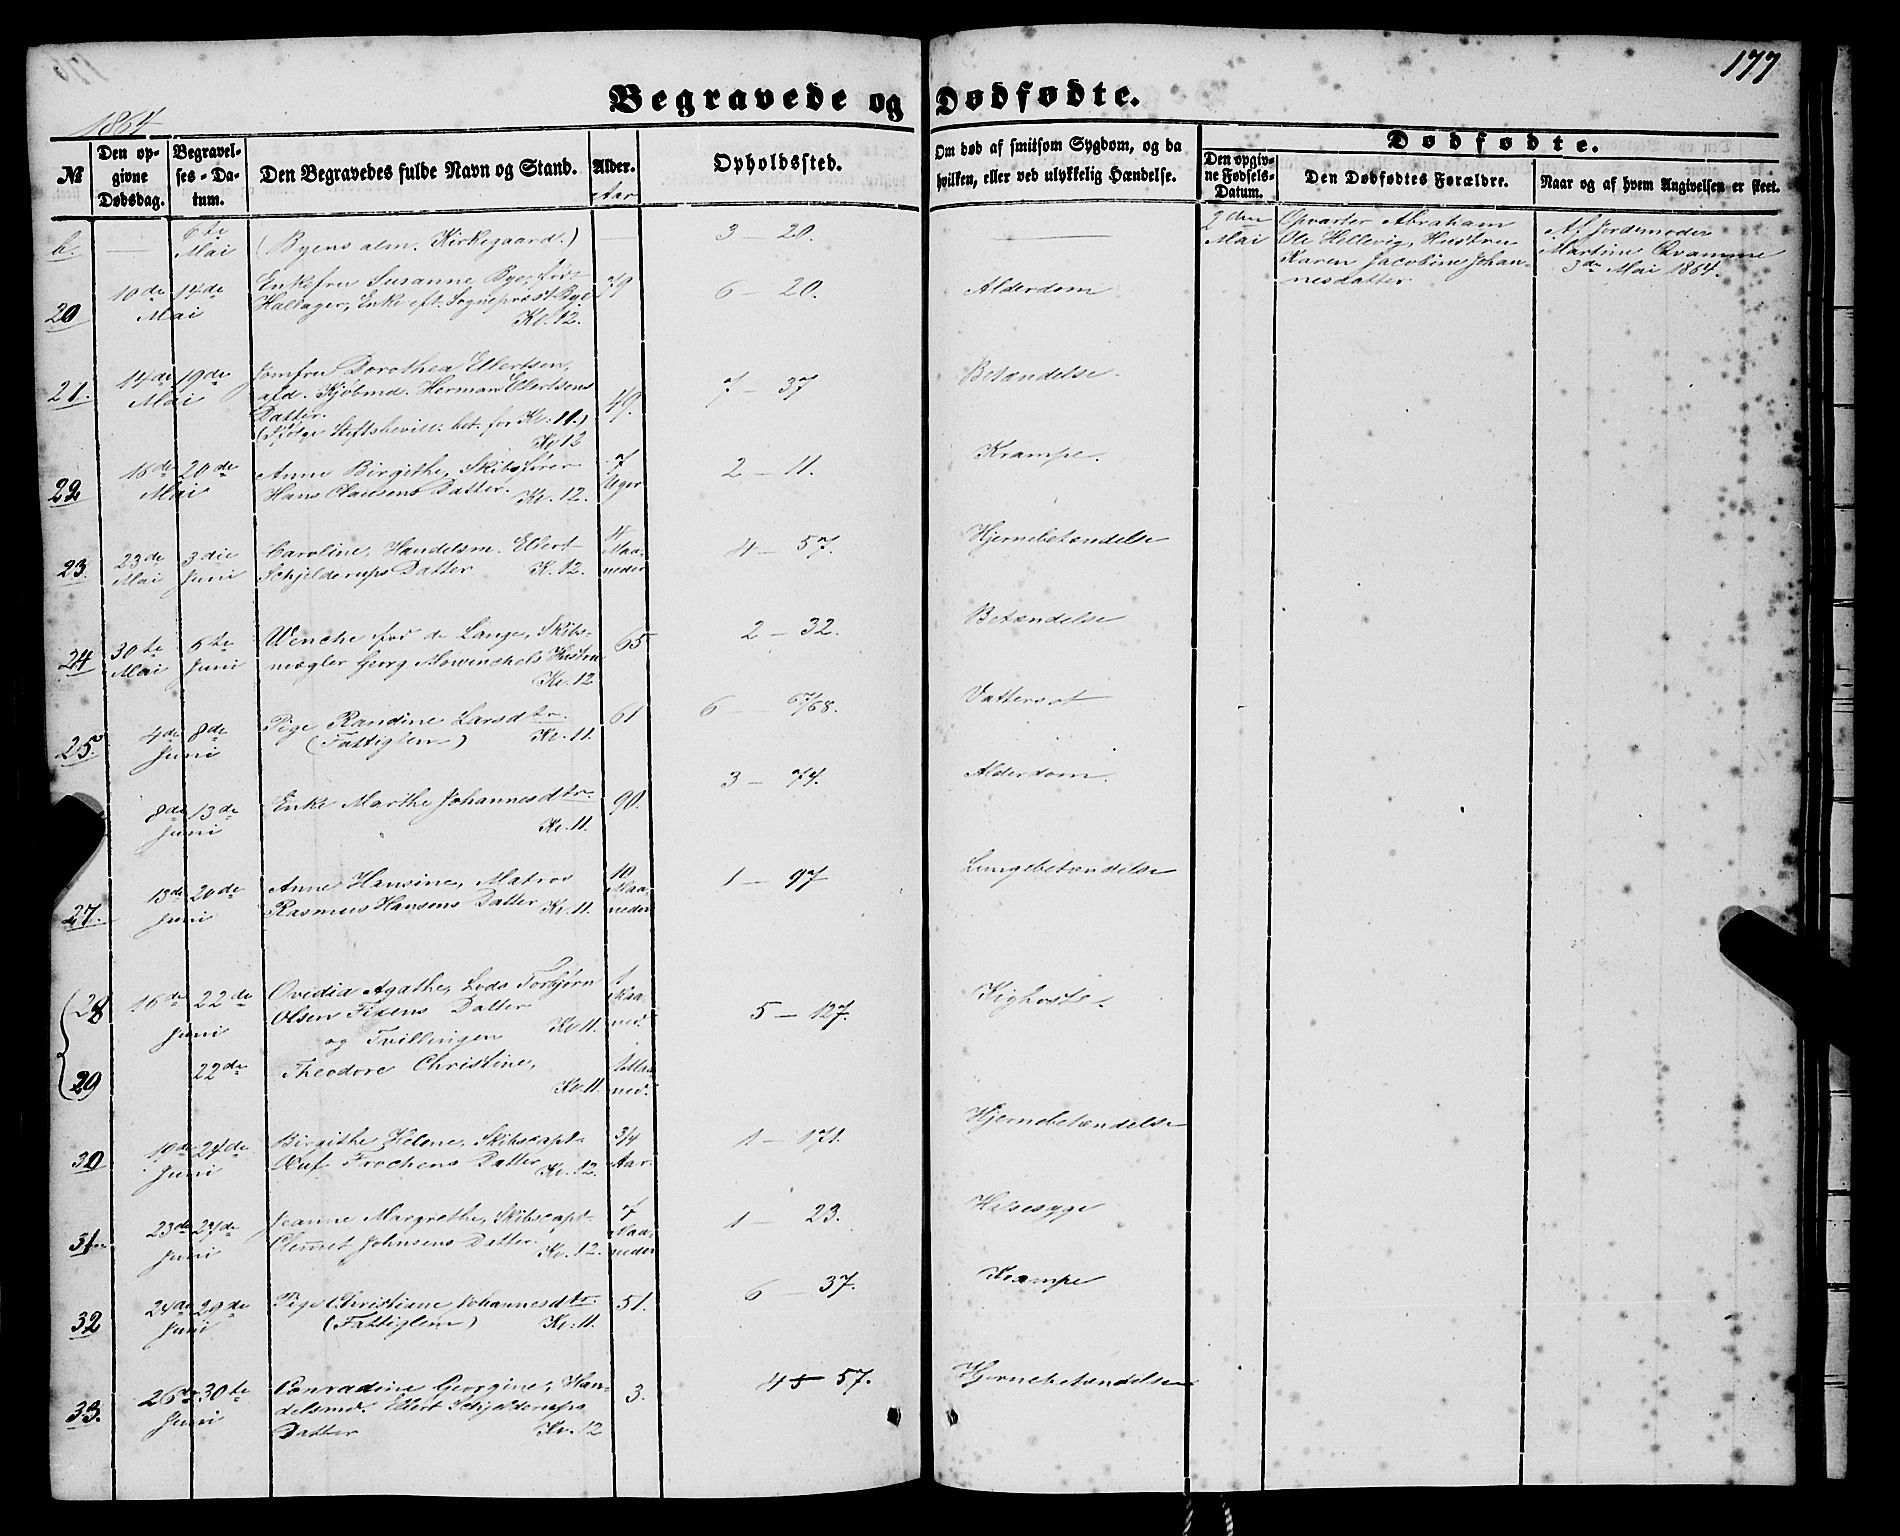 177
1864
Begravede og Dødfødte.
№
Den opgivne Dødsdag.
Begravelses-Datum.
Den Begravedes fulde Navn og Stand.
Alder.
Aar
Opholdssted.
Om død af smitsom Sygdom, og da
hvilken, eller ved ulykkelig Hændelse.
Dødfødte.
Den opgivne Fødsels-Datum.
Den Dødfødtes Forældre.
Naar og af hvem Angivelsen er skeet.
6te Mai
(Byens alm. Kirkegaard.)
3 20.
2den Mai
Abraham
Ole Hellevig, Hustru
Karen Jacobine Johan-
nesdatter
Af Jordemoder
Martine Qvamme
3die Mai 1864.
20
10de 14de
Mai
Enkefru Susanne Bye, født
Hallager, Enke eft. Sognepræst Bye
Kl. 12.
79
6 — 20.
Alderdom
21.
14de 19de
Mai
Jomfru Dorothea Ellertsen,
afd. Kjøbmd. Herman Ellertsens
Datter.
(Ifølge Stiftsbevill. bet. for Kl. 11.)
Kl. 12
49.
7 — 37
Betændelse.
22
18de 20de
Mai
Anne Birgithe, Skibsfører
Hans Clausens Datter. Kl. 12.
7
Uger
2 — 11.
Krampe.
23.
23de 3die
Mai Juni
Caroline, Handelsm. Ellert
Schjelderups Datter Kl. 12.
Maa-
neder
4 — 57.
Hjernebetændelse
24
30te 6te
Mai Juni
Wenche fød de Lange, Skibs-
mægler Georg Mowinckels Hustru
Kl. 12
65
2 — 32.
Betændelse
25.
4de 8de
Juni
Pige Randine Larsdtr.
(Fattiglem) Kl. 11.
61
6 — 67/68.
Vattersot
8de 13de
Juni
Enke Marthe Johannesdtr.
Kl. 11.
90.
3 — 74.
Alderdom.
27.
13de 20de
Juni
Anne Hansine, Matros
Rasmus Hansens Datter Kl. 11.
10
Maa-
neder
1 — 97
Lungebetændelse
28
16de 22de
Juni
Ovidia Agathe, Lods Torbjørn
Olsen Fixens Datter
Kl. 11.
og Tvillingen
Maa-
ned.
5 — 127.
Kighoste.
29
22de
Theodore Christine,
Kl. 11
ned.
30
19de 24de
Juni
Birgithe Helene, Skibscapt.
Trochens Datter Kl. 12.
3/4
Aar.
1 — 171.
Hjernebetændelse
31
23de 27de
Juni
Jeanne Margrethe, Skibscapt.
Clemet Johnsens Datter. Kl. 12.
7
Maa-
neder
1 — 23.
Halsesyge
32
24de 29de
Juni
Pige Christiane Johannesdtr.
(Fattiglem) Kl. 11.
51.
6 — 37.
Krampe
33.
26de 30te
Juni
Conradine Georgine, Han-
delsmd. Ellert Schjelderups
Datter Kl. 12
3.
4 5 57.
Hjernebetændelse